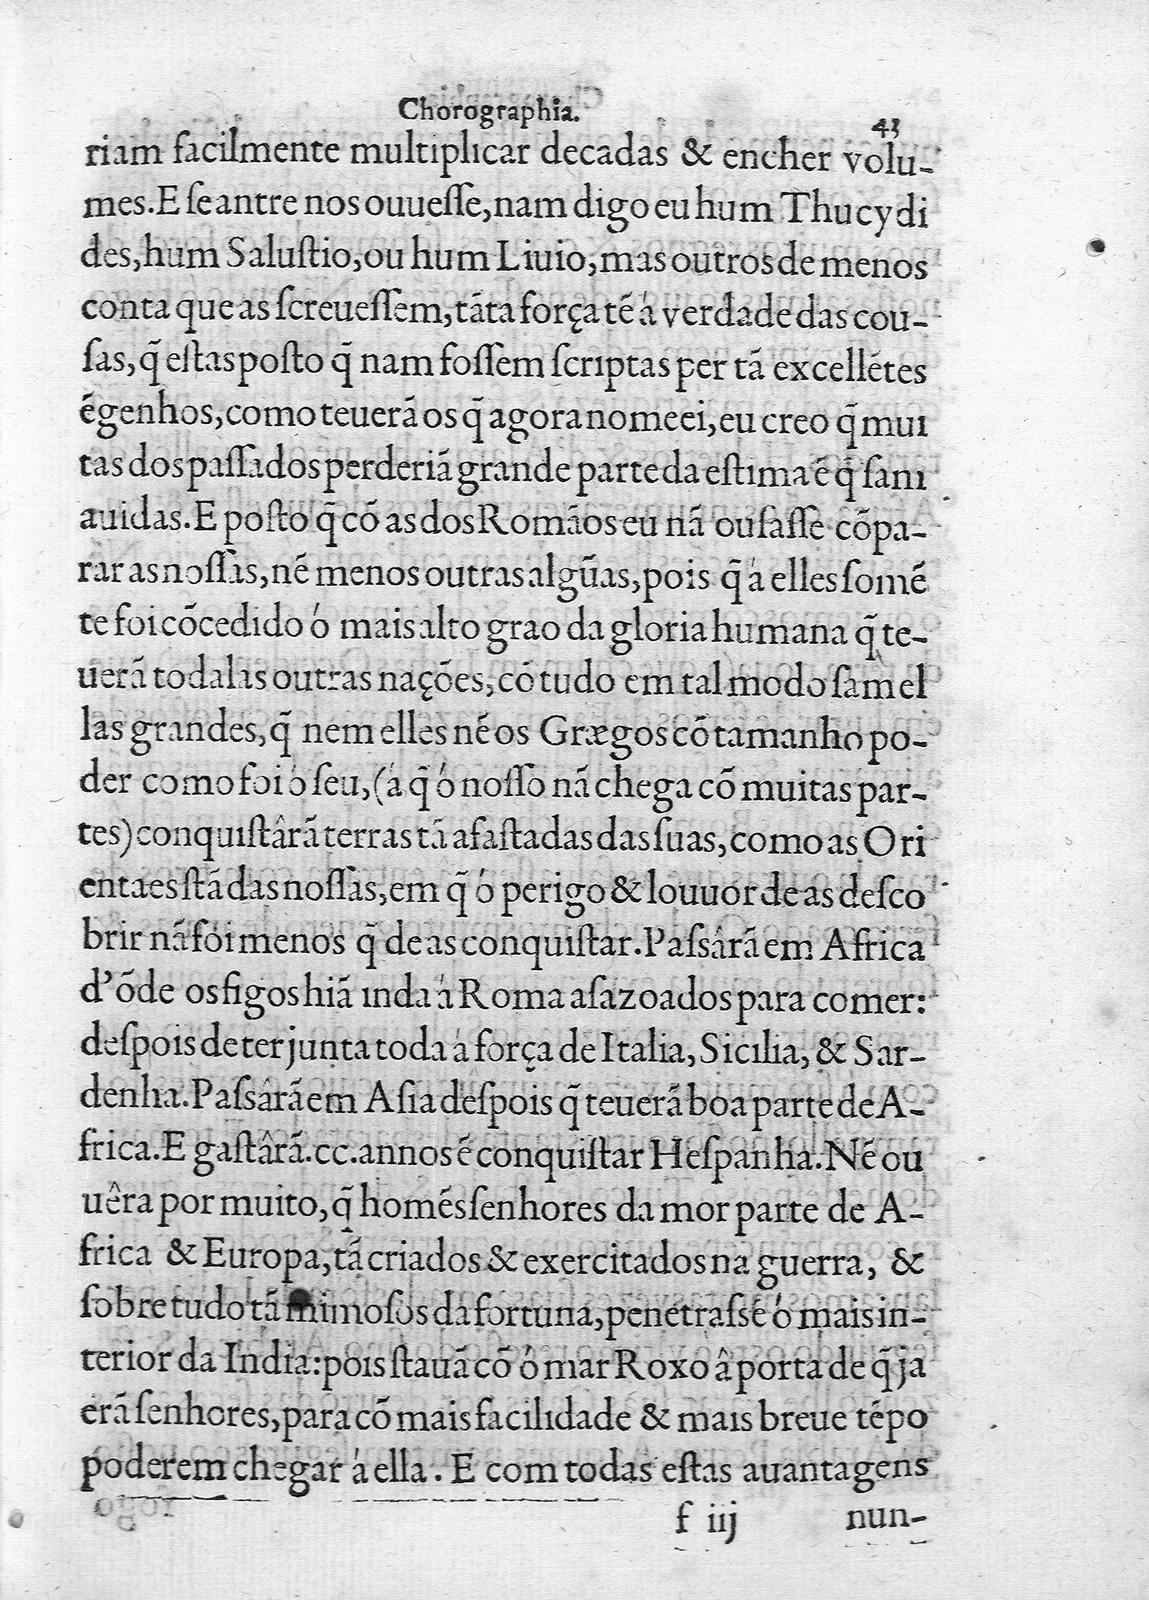 Chorographia.
43
riam facilmente multiplicar decadas & encher volu-
mes.E ſe antre nos ouueſſe,nam digo eu hum Thucydi
des,hum Saluſtio,ou hum Liuio,mas outros de menos
conta que as ſcreueſſem,tãta força tẽ á verdade das cou-
ſas,q̃ eſtas poſto q̃ nam foſſem ſcriptas per tã excellẽtes
ẽgenhos,como teuerã os q̃ agora nomeei,eu creo q̃ mui
tas dos paſſados perderiã grande parte da eſtima ẽ q̃ ſam
auidas.E poſto q̃ cõ as dos Romãos eu nã ouſaſſe cõpa-
rar as noſſas,nẽ menos outras algũas,pois q̃ á elles ſomẽ
te foi cõcedido ó mais alto grao da gloria humana q̃ te-
uerã todalas outras nações,cõ tudo em tal modo ſam el
las grandes,q̃ nem elles nẽ os Græegos cõ tamanho po-
der como foi ó ſeu,(á q̃ ó noſſo nã chega cõ muitas par-
tes)conquiſtârã terras tã afaſtadas das ſuas,como as Ori
entaes ſtã das noſſas,em q̃ ó perigo & louuor de as deſco
brir nã foi menos q̃ de as conquiſtar.Paſsârã em Africa
d'õde os figos hiã inda á Roma aſazoados para comer:
deſpois de ter junta toda á força de Italia,Sicilia,& Sar-
denha.Paſsârã em Aſia deſpois q̃ teuerã boa parte de A-
frica.E gaſtârã.cc.annos ẽ conquiſtar Heſpanha.Nẽ ou
uêra por muito,q̃ homẽs ſenhores da mor parte de A-
frica & Europa,tã criados & exercitados na guerra, &
ſobre tudo tã mimoſos da fortuna,penetraſsẽ ó mais in-
terior da India:pois ſtauã cõ ó mar Roxo â porta de q̃ ja
erã ſenhores,para cõ mais facilidade & mais breue tẽpo
poderem chegar á ella. E com todas eſtas auantagens
f iij
nun-